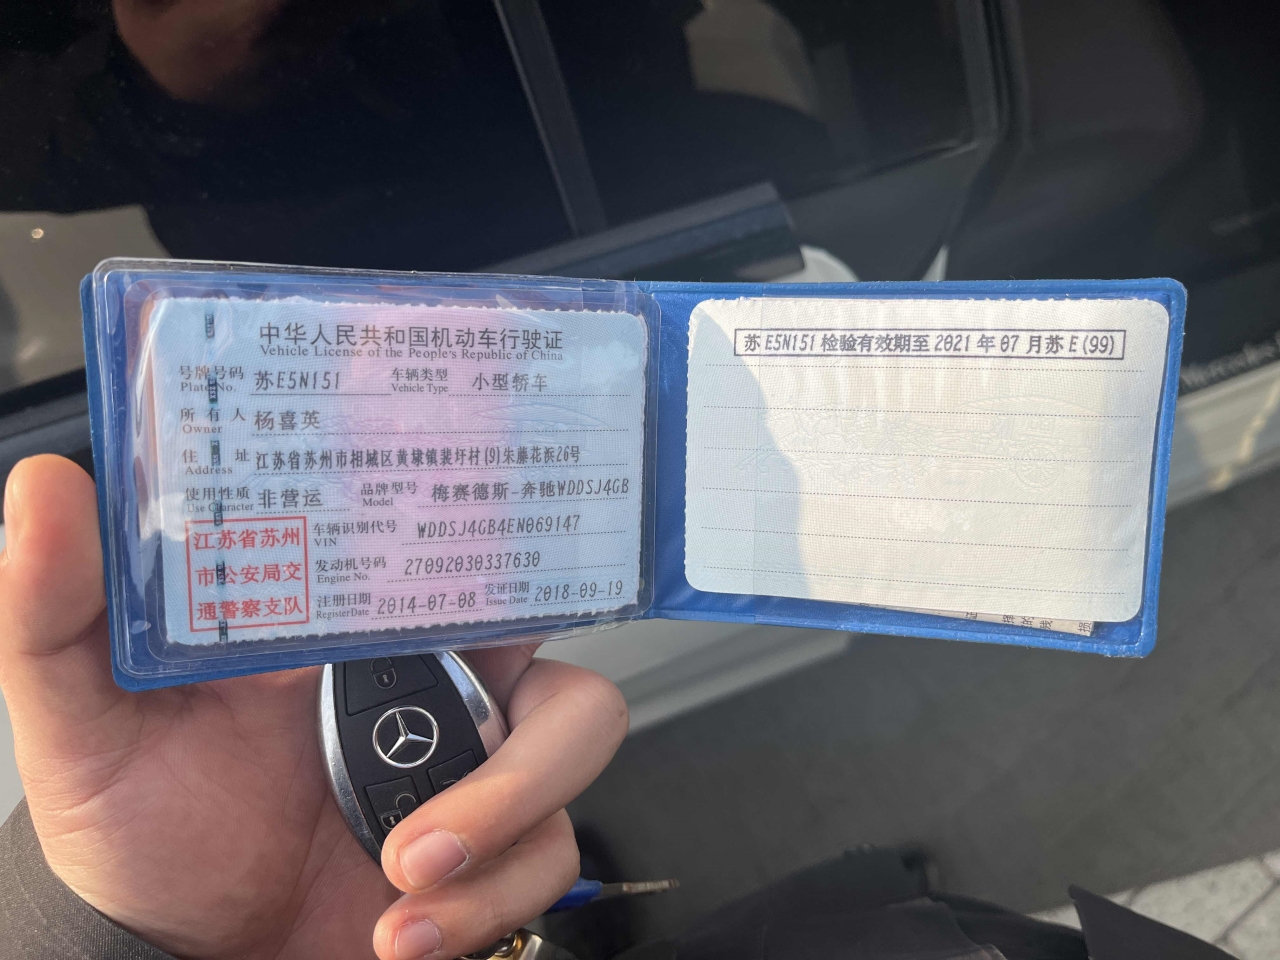 中华人民共和国机动车行驶证
Vehicle License of the People's Republic of China
号牌号码 苏E5N151 车辆类型 小型轿车
Plate No. Vehicle Type
所有人 杨喜英
Owner
住址 江苏省苏州市相城区黄埭镇裴圩村(9)朱藤花浜26号
Address
使用性质 非营运 品牌型号 梅赛德斯-奔驰WDDSJ4GB
Use Character Model
江苏省苏州
市公安局交
通警察支队
车辆识别代号 WDDSJ4GB4EN069147
VIN
发动机号码 27092030337630
Engine No.
注册日期 2014-07-08 发证日期 2018-09-19
Register Date Issue Date
苏E5N151检验有效期至2021年07月苏E(99)